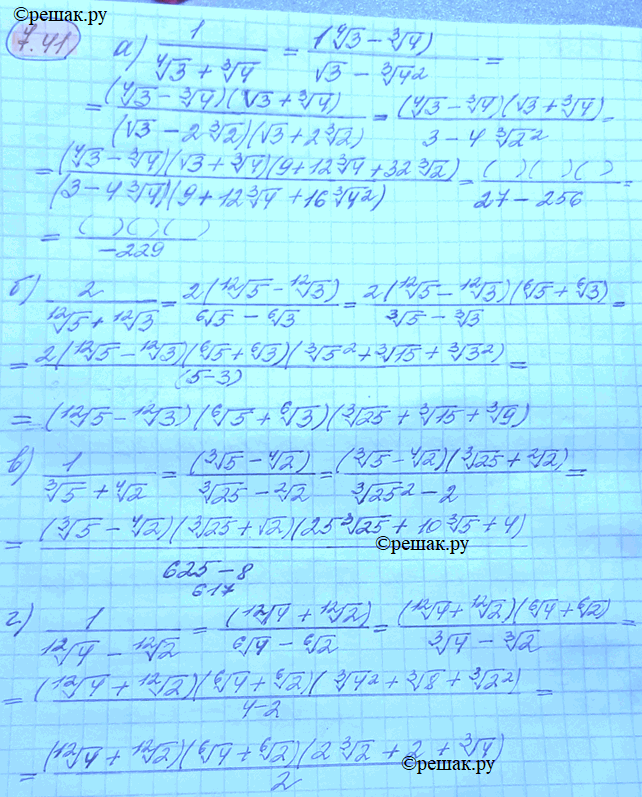 ©решак.ру
7.41) а) 1/(⁴√3 + ³√4) = 1(⁴√3 − ³√4)/(√3 − ³√4²) =
= (⁴√3 − ³√4)(√3 + ³√4)/((√3 − 2³√2)(√3 + 2³√2)) = (⁴√3 − ³√4)(√3 + ³√4)/(3 − 4³√2²) =
= (⁴√3 − ³√4)(√3 + ³√4)(9 + 12³√4 + 32³√2)/((3 − 4³√4)(9 + 12³√4 + 16³√4²)) = ( )( )( )/(27 − 256) =
= ( )( )( )/−229
б) 2/(¹²√5 + ¹²√3) = 2(¹²√5 − ¹²√3)/(⁶√5 − ⁶√3) = 2(¹²√5 − ¹²√3)(⁶√5 + ⁶√3)/(³√5 − ³√3) =
= 2(¹²√5 − ¹²√3)(⁶√5 + ⁶√3)(³√5² + ³√15 + ³√3²)/(5 − 3) =
= (¹²√5 − ¹²√3)(⁶√5 + ⁶√3)(³√25 + ³√15 + ³√9)
в) 1/(³√5 + ⁴√2) = (³√5 − ⁴√2)/(³√25 − ²√2) = (³√5 − ⁴√2)(³√25 + ²√2)/(³√25² − 2) =
= (³√5 − ⁴√2)(³√25 + √2)(25³√25 + 10³√5 + 4)/(625 − 8)
©решак.ру
617
г) 1/(¹²√4 − ¹²√2) = (¹²√4 + ¹²√2)/(⁶√4 − ⁶√2) = (¹²√4 + ¹²√2)(⁶√4 + ⁶√2)/(³√4 − ³√2) =
= (¹²√4 + ¹²√2)(⁶√4 + ⁶√2)(³√4² + ³√8 + ³√2²)/(4 − 2) =
= (¹²√4 + ¹²√2)(⁶√4 + ⁶√2)(2³√2 + 2 + ³√4)/2
©решак.ру